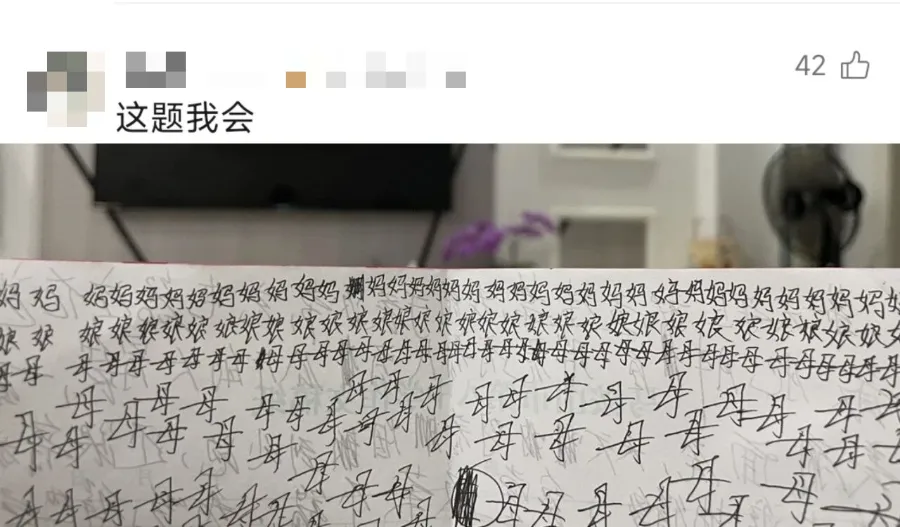 42
这题我会
妈妈 妈妈妈妈妈妈妈妈妈妈 妈妈妈妈妈妈妈妈妈妈妈妈妈妈妈妈妈妈妈妈妈妈
娘娘 娘娘娘娘娘娘娘娘娘娘娘娘娘娘娘娘娘娘娘娘娘娘娘娘娘娘娘娘娘娘娘
母母 母母母母母母母 母母母母母母母母母母母 母母母母母母母母母母母母母母母
母母母母母母母母母母母母母母母母母
母母母母母母母母母母母母母母母母母母
母母母母母母母母母 母母母母母母